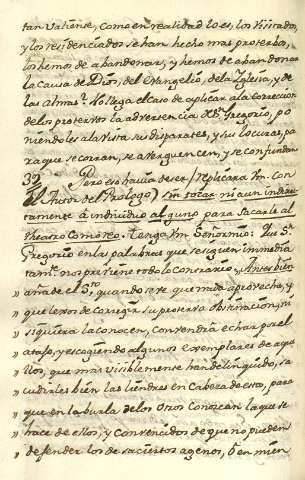 tan valiense, como en realidad lo es, los Visitados,
y los residenciados se han hecho mas protervos,
los hemos de abandonar, y hemos de abandonar
la causa de Dios, del Evangelio, de la Iglesia, y de
las almas? No llega el caso de aplicar a la correccion
delos protervos la adversencia Sn. Gregorio, po
niendoles a la vista sus disparates, y sus locuras, pa
ra que se corran, se averguencen, y se confundan
32 Pero eso havia de ser (replicara Vm. con
el Autor del Prologo) sin tocar ni aun indirec
tamente à individuo alguno para sacarle al
theatro Comico. Tenga Vm Señor mio: Que Sn.
Gregorio en las palabras que se siguen immedia
tamte. nos previene todo lo contrario. Antes bien
" añade el Sto, quando este que nada aprovecha, y
" que lexos de corregir su proterva obstinacion, ni
" siquiera la conocen, convendria echar por el
" atajo, y escogiendo algunos exemplares de aque
" llos, que mas visiblemente han delinquido, sa
" cudirles bien las liendres en Cabeza de estos, para
" que en la burla de los otros conozcan la que se
" hace de ellos, y convencidos de que no pueden
" defender los desaciertos agenos, ò en mien